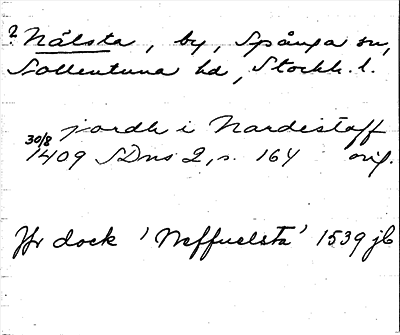 ? Nälsta, by, Spånga sn,
Sollentuna hd, Stockh. l.
jordh i Nardestaff
30/8 1409 SDns 2, s. 164 orig.
Jfr dock 'Neffuelsta' 1539 jb